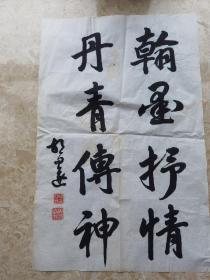 翰墨抒情
丹青傳神